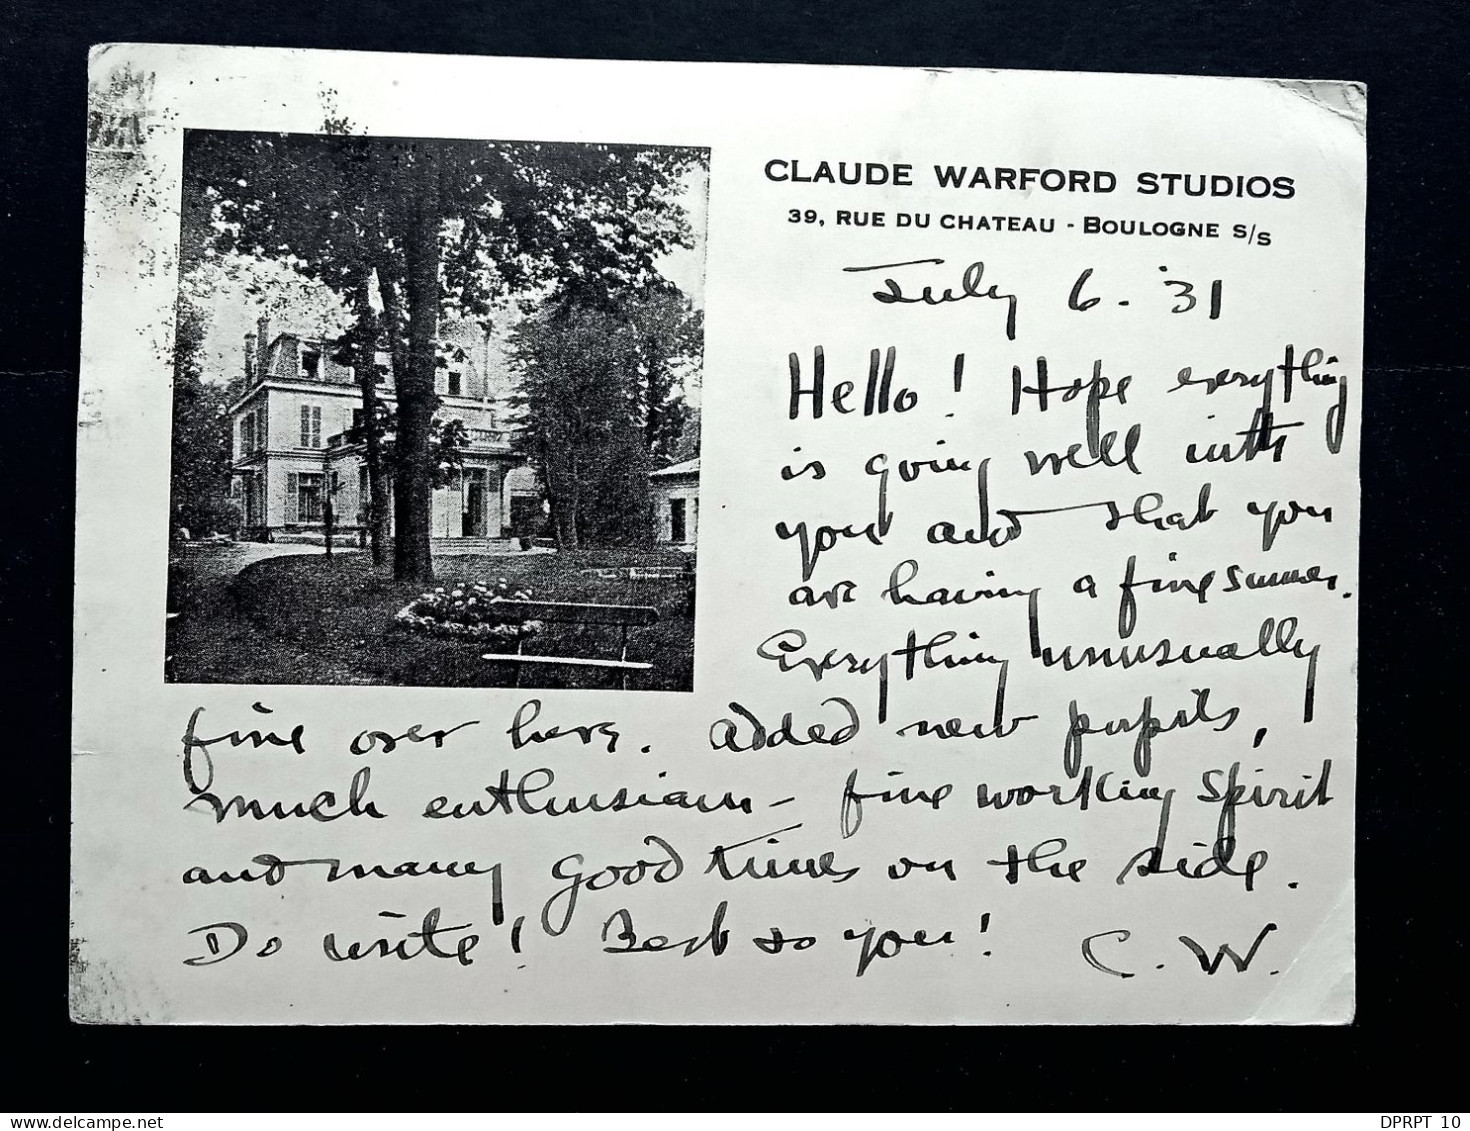 CLAUDE WARFORD STUDIOS
39, RUE DU CHATEAU - BOULOGNE S/S
July 6. '31
Hello! Hope everything
is going well with
you and that you
are having a fine summer.
Everything unusually
fine over here. Added new pupils,
much enthusiasm - fine working spirit
and many good times on the side.
Do write! Best to you!
C. W.
DPRPT 10